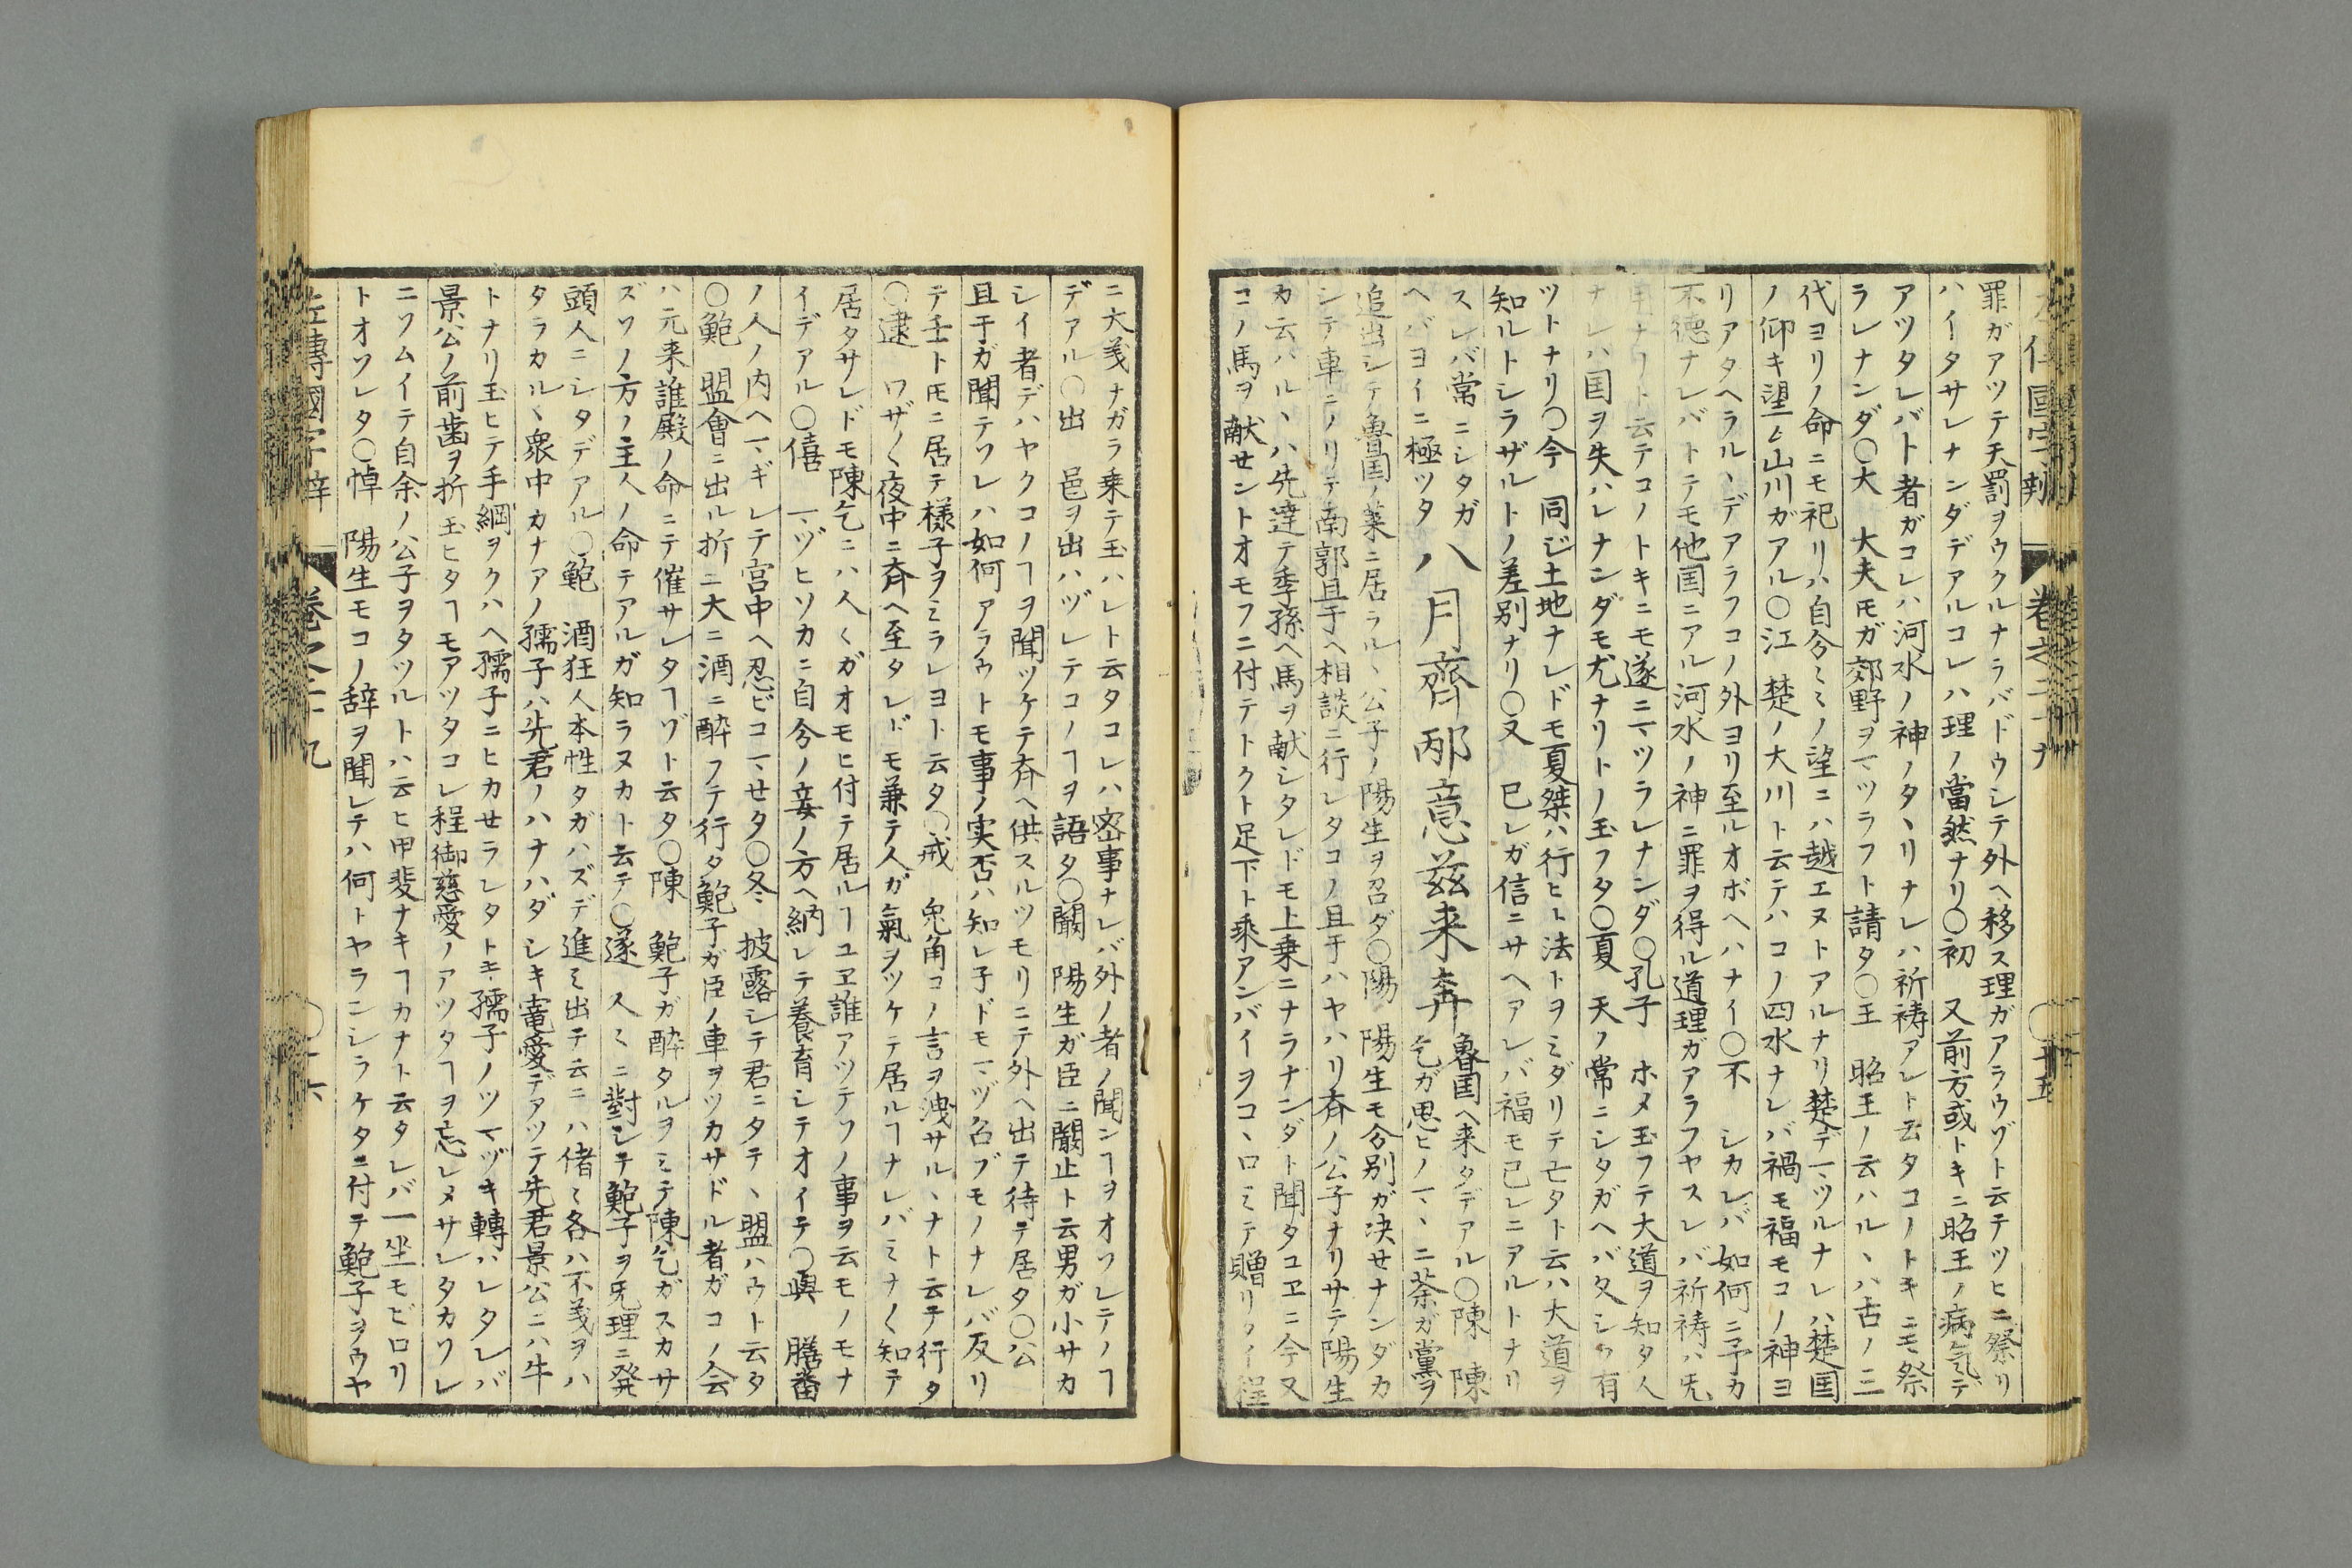 罪ガアツテ天罰ヲウクルナラバドウシテ外ヘ移ス理ガアラウゾト云テツヒニ祭リ
ハイタサレナンダデアルコレハ理ノ當然ナリ〇初　又前方或トキニ昭王ノ病気デ
アツタレバト者ガコレハ河水ノ神ノタヽリナレハ祈祷アレト云タコノトキニモ祭
ラレナンダ〇大　大夫𪜈ガ郊野ヲマツラフト請タ〇王　昭王ノ云ハルヽハ古ノ三
代ヨリノ命ニモ祀リハ自分ミミノ望ニハ越エヌトアルナリ楚デマツルナレハ楚国
ノ仰キ望ム山川ガアル〇江　楚ノ大川ト云テハコノ四水ナレバ禍モ福モコノ神ヨ
リアタヘラルヽデアラフコノ外ヨリ至ルオボヘハナイ〇不　シカレバ如何ニ予カ
不徳ナレバトテモ他国ニアル河水ノ神ニ罪ヲ得ル道理ガアラフヤスレバ祈祷ハ旡
用ナリト云テコノトキニモ遂ニマツラレナンダ〇孔子　ホメ玉フテ大道ヲ知タ人
ナレハ国ヲ失ハレナンダモ尤ナリトノ玉フタ〇夏　天ノ常ニシタガヘバ久シク有
ツトナリ〇今　同ジ土地ナレドモ夏桀ハ行ヒト法トヲミダリテ亡タト云ハ大道ヲ
知ルトシラザルトノ差別ナリ〇又　已レガ信ニサヘアレバ福モ已レニアルトナリ
スレバ常ニシタガ
ヘバヨイニ極ツタ
八月齊邴意茲来奔
魯国ヘ来タデアル〇陳　陳
乞ガ思ヒノマヽニ荼ガ黨ヲ
追出シテ魯国ノ菜ニ居ラルヽ公子ノ陽生ヲ召ダ〇陽　陽生モ分別ガ决セナンダカ
シテ車ニノリテ南郭且于ヘ相談ニ行レタコノ且于ハヤハリ斉ノ公子ナリサテ陽生
カ云ハルヽハ先達テ季孫ヘ馬ヲ献シタレドモ上乗ニナラナンダト聞タユヱニ今又
コノ馬ヲ献センナトオモフニ付テトクト足下ト乘アンバイヲコヽロミテ贈リタイ程
ニ大義ナガラ乗テ玉ハレト云タコレハ密事ナレバ外ノ者ノ聞ンヿヲオソレテノヿ
デアル〇出　邑ヲ出ハヅレテコノヿヲ語タ〇闞　陽生ガ臣ニ闞止ト云男ガ小サカ
シイ者デハヤクコノヿヲ聞ツケテ斉ヘ供スルツモリニテ外ヘ出テ待テ居タ〇公
且于ガ聞テソレハ如何アラウトモ事ノ実否ハ知レ子ドモマヅ召ブモノナレバ反リ
テ壬ト𪜈ニ居テ様子ヲミラレヨト云タ〇戒　兎角コノ言ヲ洩サルヽナト云テ行タ
〇逮　ワザ〱夜中ニ斉ヘ至タレドモ兼テ人ガ氣ヲツケテ居ルヿナレバミナ〱知テ
居タサレドモ陳乞ニハ人〱ガオモヒ付テ居ルヿユヱ誰アツテソノ事ヲ云モノモナ
イデアル〇僖　マヅヒソカニ自分ノ妾ノ方ヘ納レテ養育シテオイテ〇與　膳番
ノ人ノ内ヘマギレテ宮中ヘ忍ビコマセタ〇冬　披露シテ君ニタテヽ盟ハウト云タ
〇鮑　盟會ニ出ル折ニ大ニ酒ニ酔フテ行タ鮑子ガ臣ノ車ヲツカサドル者ガコノ会
ハ元来誰殿ノ命ニテ催サレタヿゾト云タ〇陳　鮑子ガ酔タルヲミテ陳乞ガスカサ
ズソノ方ノ主人ノ命テアルガ知ラヌカト云テ〇遂　人ミニ對シテ鮑子ヲ旡理ニ発
頭人ニシタデアル〇鮑　酒狂人本性タガハズデ進ミ出テ云ニハ偖ミ各ハ不義ヲハ
タラカルヽ衆中カナアノ孺子ハ先君ノハナハダシキ寵愛デアツテ先君景公ニハ牛
トナリ玉ヒテ手綱ヲクハヘ孺子ニヒカセラレタトキ孺子ノツマヅキ轉ハレタレバ
景公ノ前歯ヲ折玉ヒタヿモアツタコレ程御慈愛ノアツタヿヲ忘レメサレタカソレ
ニソムイテ自余ノ公子ヲタツルトハ云ヒ甲斐ナキヿカナト云タレバ一坐モビロリ
トオソレタ〇悼　陽生モコノ辞ヲ聞レテハ何トヤランシラケタニ付テ鮑子ヲウヤ
左傳國字辯　卷之十九